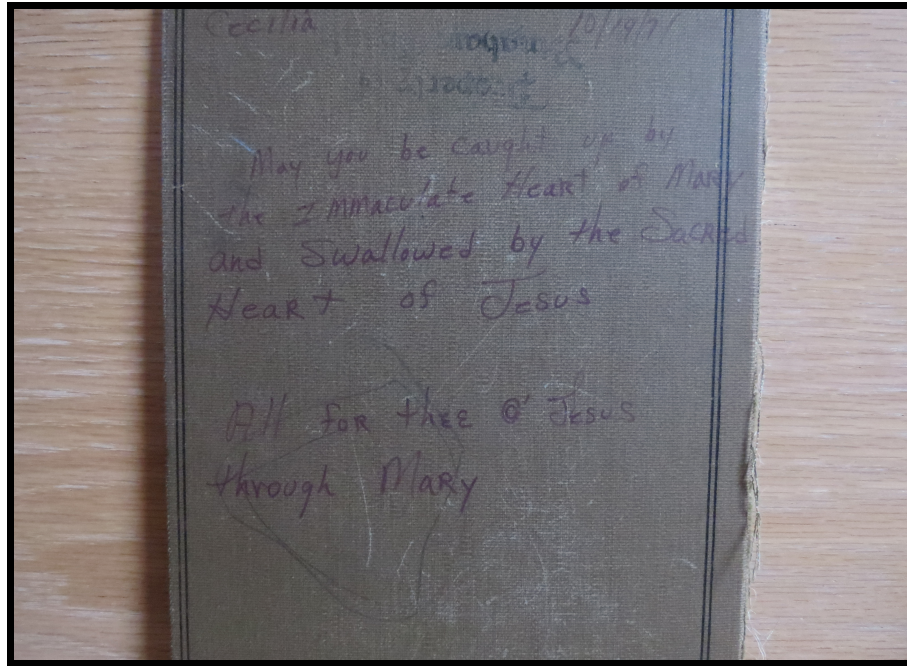 Cecilia 10/19/71
May you be caught up by
the Immaculate Heart of Mary
and Swallowed by the Sacred
Heart of Jesus
All for thee O' Jesus
through Mary